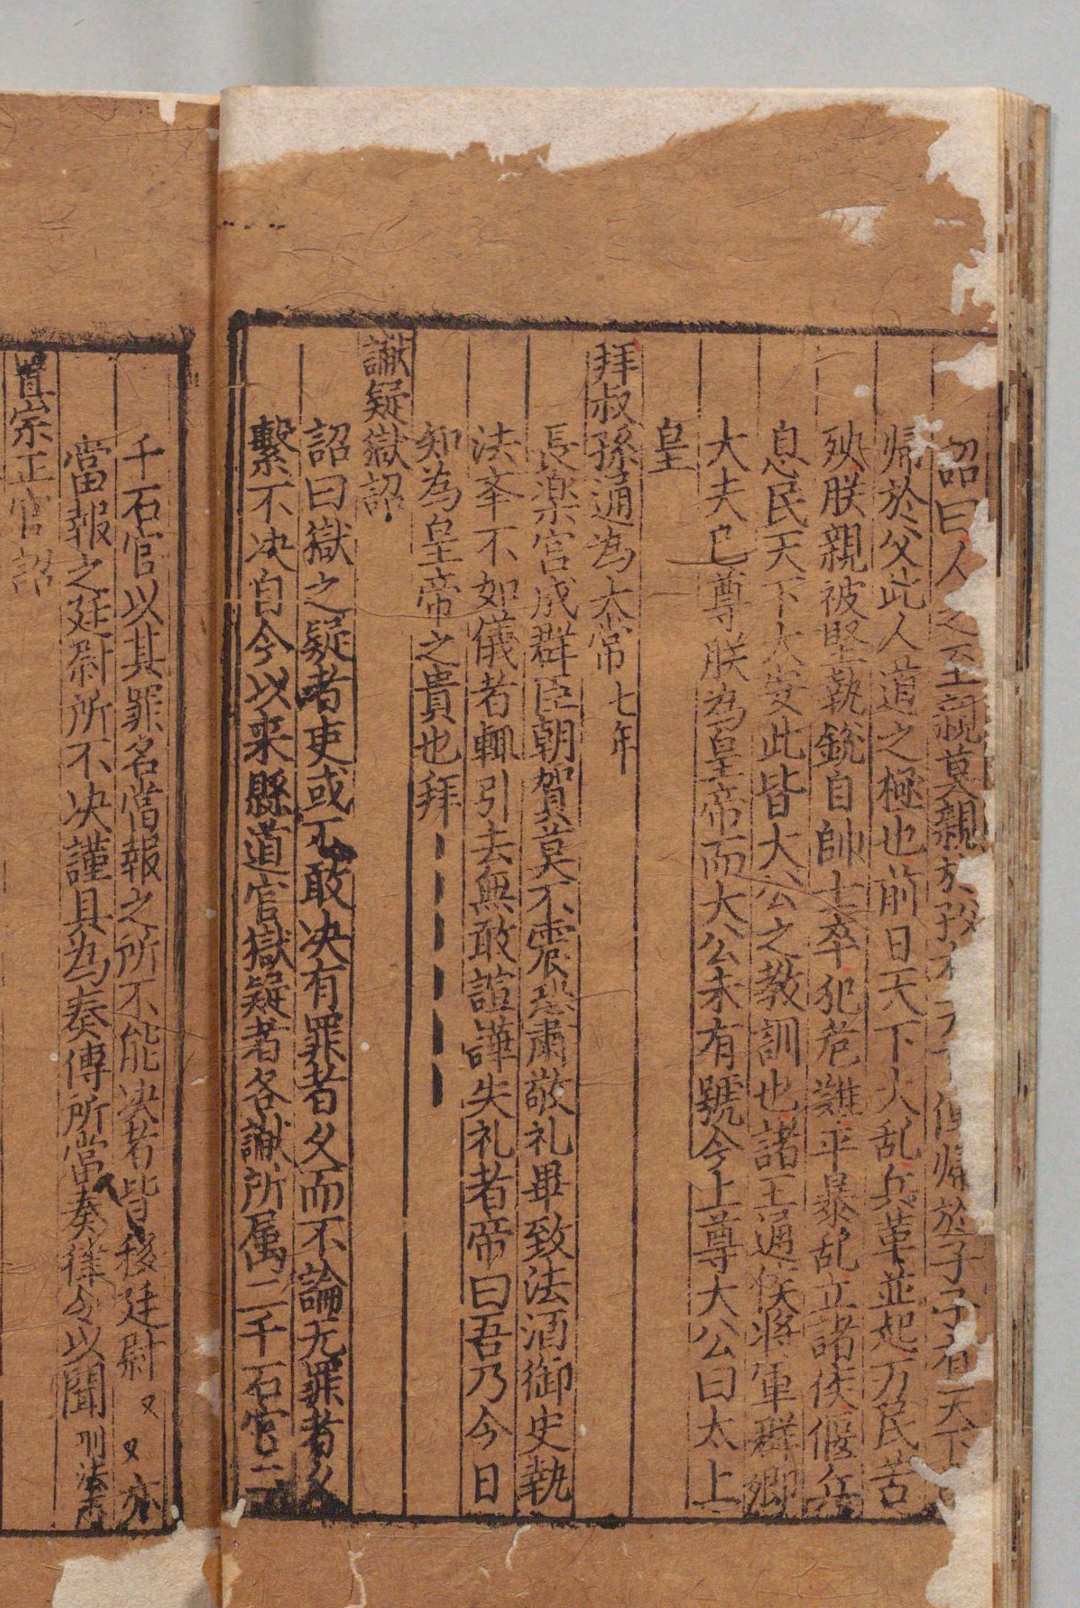 詔曰人之至親莫親於父子　　　　傳歸於子子有天下
帰於父此人道之極也前日天下大乱兵革並起万民苦
殃朕親被堅執銳自帥士卒犯危難平暴乱立諸侯偃兵
息民天下大安此皆大公之教訓也諸王通侯将軍群卿
大夫已尊朕為皇帝而大公未有號今上尊大公曰太上
皇
拜叔孫通為太常七年
長楽宮成群臣朝賀莫不震恐肅敬礼畢致法酒御史執
法奉不如儀者輒引去無敢諠譁失礼者帝曰吾乃今日
知為皇帝之貴也拜
讞疑獄詔
詔曰獄之疑者吏或不敢决有罪者久而不論无罪者久
繫不决自今以来縣道官獄疑者各讞所属二千石官二
千石官以其罪名當報之所不能决者皆移廷尉又又亦
當報之廷尉所不决謹具為奏傅所當奏律令以聞刑法志
置宗正官詔